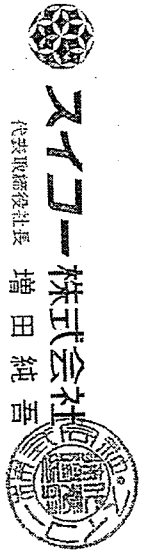 スイコー株式会社
代表取締役社長 増田純吾